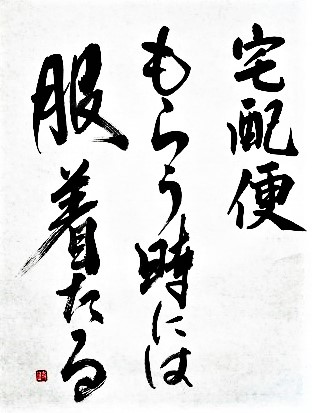 宅配便
もらう時には
服着たる